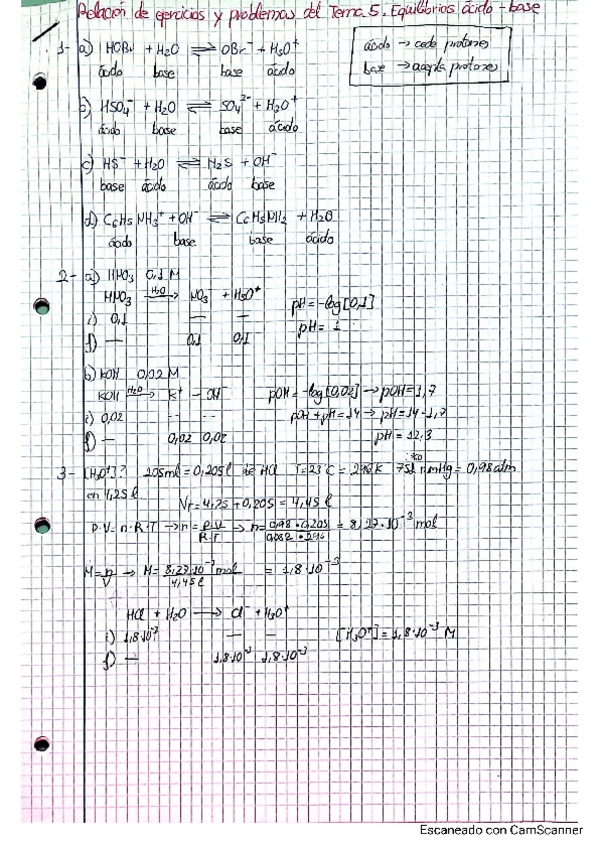 Relación de ejercicios y problemas del Tema 5. Equilibrios ácido-base
ácido → cede protones
base → acepta protones
1- a) HOBr + H2O ⇌ OBr⁻ + H3O⁺
ácido base base ácido
b) HSO4⁻ + H2O ⇌ SO4²⁻ + H3O⁺
ácido base base ácido
c) HS⁻ + H2O ⇌ H2S + OH⁻
base ácido ácido base
d) C6H5NH3⁺ + OH⁻ ⇌ C6H5NH2 + H2O
ácido base base ácido
2- a) HNO3 0,1 M
HNO3 —H2O→ NO3⁻ + H3O⁺
i) 0,1 — —
f) — 0,1 0,1
pH = -log[0,1]
pH = 1
b) KOH 0,02 M
KOH —H2O→ K⁺ - OH⁻
i) 0,02 -- --
f) — 0,02 0,02
pOH = -log[0,02] → pOH = 1,7
pOH + pH = 14 → pH = 14 - 1,7
pH = 12,3
3- [H3O⁺]? 205ml = 0,205 l de HCl T = 23°C = 296 K 751 mmHg = 0,98 atm
en 4,25 l
VT = 4,25 + 0,205 = 4,45 l
P·V = n·R·T → n = P·V/R·T → n = 0,98 · 0,205/0,082 · 296 = 8,27·10⁻³ mol
M = n/V → M = 8,27·10⁻³ mol/4,45 l = 1,8·10⁻³
HCl + H2O → Cl⁻ + H3O⁺
i) 1,8·10⁻³ — —
f) — 1,8·10⁻³ 1,8·10⁻³
[H3O⁺] = 1,8·10⁻³ M
Escaneado con CamScanner